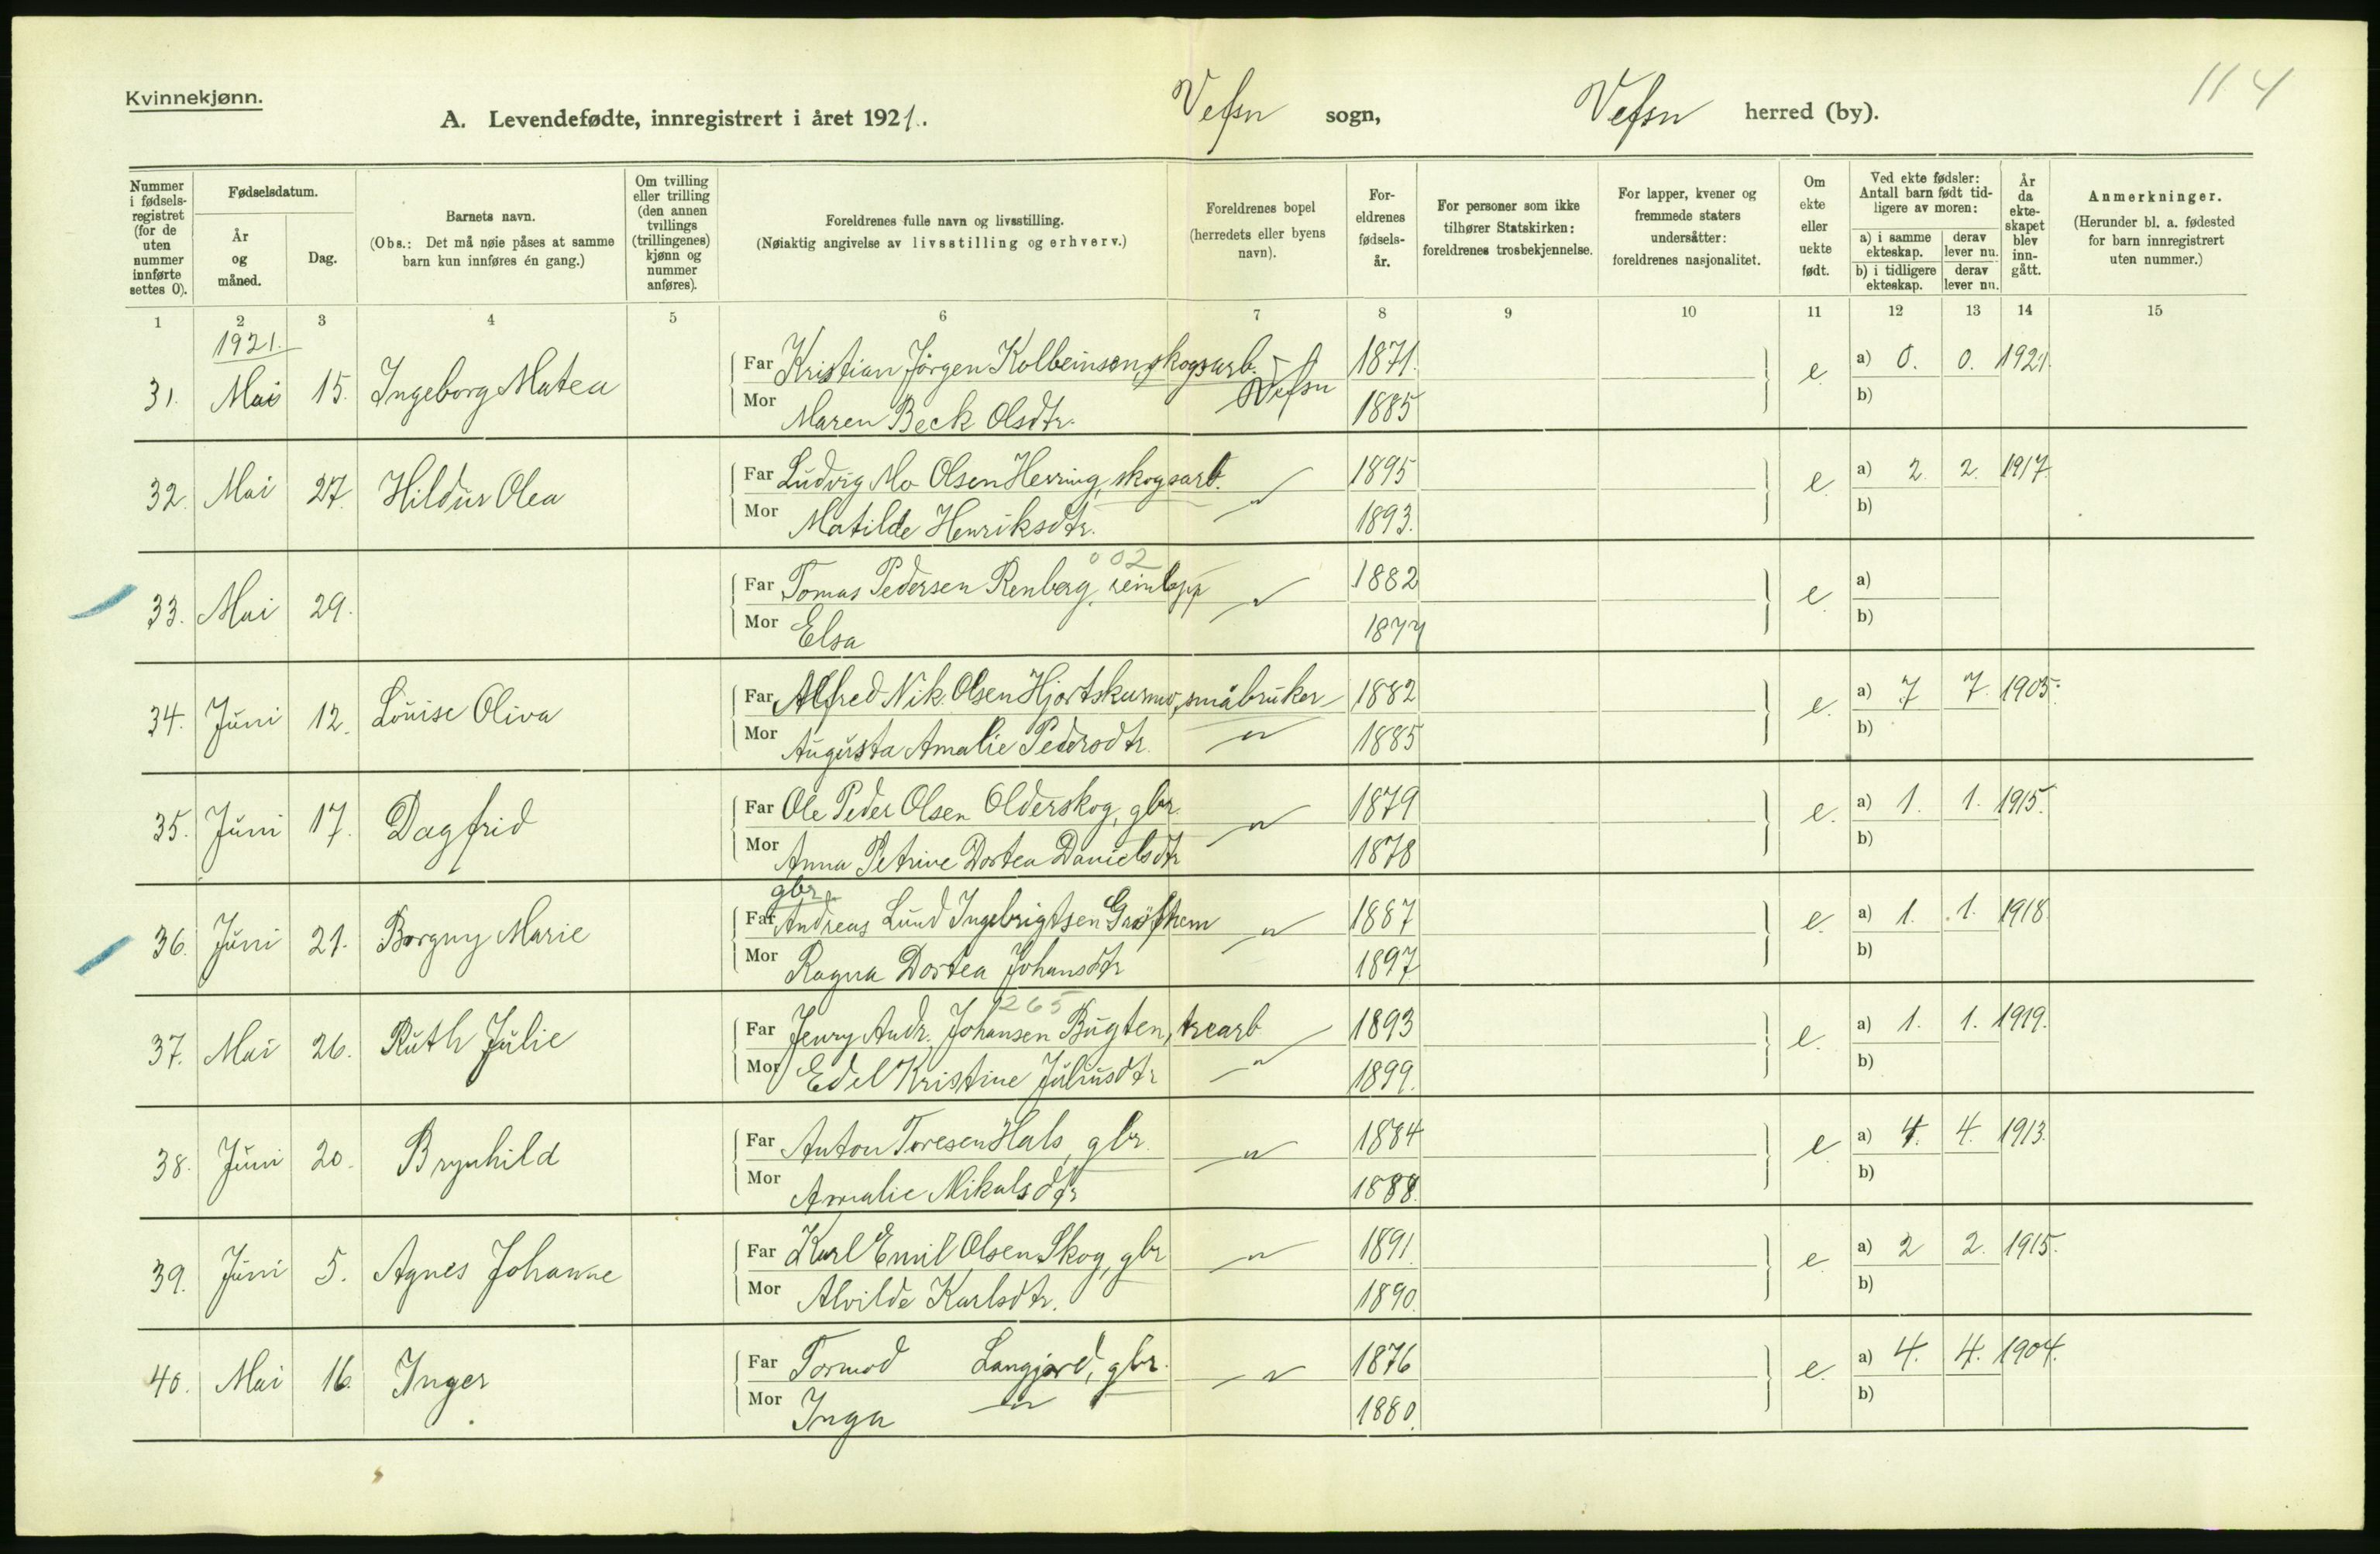 Kvinnekjønn.
114
A. Levendefødte, innregistrert i året 1921. Vefsn sogn, Vefsn herred (by).
Nummer i fødsels-registret (for de uten nummer innførte settes 0).
Fødselsdatum.
År og måned.
Dag.
Barnets navn.
(Obs.: Det må nøie påses at samme barn kun innføres én gang.)
Om tvilling eller trilling (den annen tvillings (trillingenes) kjønn og nummer anføres).
Foreldrenes fulle navn og livsstilling.
(Nøiaktig angivelse av livsstilling og erhverv.)
Foreldrenes bopel (herredets eller byens navn).
For-eldrenes fødsels-år.
For personer som ikke tilhører Statskirken: foreldrenes trosbekjennelse.
For lapper, kvener og fremmede staters undersåtter: foreldrenes nasjonalitet.
Om ekte eller uekte født.
Ved ekte fødsler: Antall barn født tid-ligere av moren:
a) i samme ekteskap. derav lever nu.
b) i tidligere ekteskap. derav lever nu.
År da ekte-skapet blev inn-gått.
Anmerkninger.
(Herunder bl. a. fødested for barn innregistrert uten nummer.)
1 2 3 4 5 6 7 8 9 10 11 12 13 14 15
1921.
31. Mai 15. Ingeborg Matea Far Kristian Jörgen Kolbeinsen, skogsarb. Vefsn 1871. e. a) 0. 0. 1921.
Mor Maren Beck Olsdtr. 1885 b)
32. Mai 27. Hildur Olea Far Ludvig Mo Olsen Herring, skogsarb. " 1895 e. a) 2 2. 1917.
Mor Matilde Henriksdtr. 1893. b)
002
33. Mai 29. Far Tomas Pedersen Renberg, reinlapp " 1882 e. a)
Mor Elsa 1877 b)
34. Juni 12. Louise Oliva Far Alfred Nik. Olsen Hjortskarmo, småbruker 1882 e. a) 7 7. 1905.
Mor Augusta Amalie Pedersdtr. " 1885 b)
35. Juni 17. Dagfrid Far Ole Peder Olsen Olderskog, gbr. " 1879 e. a) 1. 1. 1915.
Mor Anna Petrine Dortea Danielsdtr 1878 b)
gbr.
36. Juni 21. Borgny Marie Far Andreas Lund Ingebrigtsen Gröfthem " 1887 e. a) 1. 1. 1918.
Mor Ragna Dortea Johansdtr 1897 b)
265
37. Mai 26. Ruth Julie Far Jenry Andr. Johansen Bugten, trearb 1893 e. a) 1. 1. 1919.
Mor Edel Kristine Juliusdtr " 1899. b)
38. Juni 20. Brynhild Far Anton Toresen Hals, gbr. " 1884 e a) 4. 4. 1913.
Mor Amalie Nikalsdtr 1888. b)
39. Juni 5. Agnes Johanne Far Karl Emil Olsen Skog, gbr " 1891. e a) 2 2. 1915.
Mor Alvilde Karlsdtr. 1890. b)
40. Mai 16. Inger Far Tormod Langjord, gbr. " 1876 e. a) 4. 4. 1904.
Mor Inga " 1880. b)